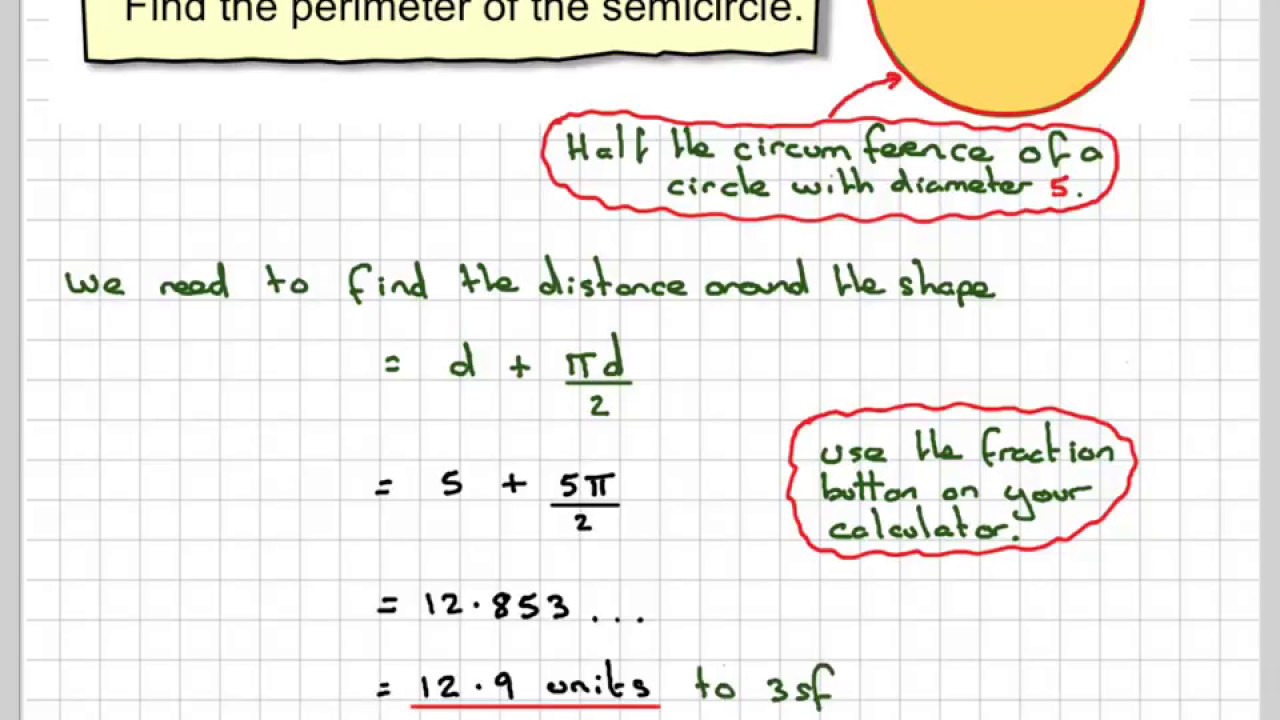 Find the perimeter of the semicircle.
Half the circum feence of a
circle with diameter 5.
We need to find the distance around the shape
= d + πd/2
= 5 + 5π/2
use the fraction
button on your
calculator.
= 12.853...
= 12.9 units to 3sf